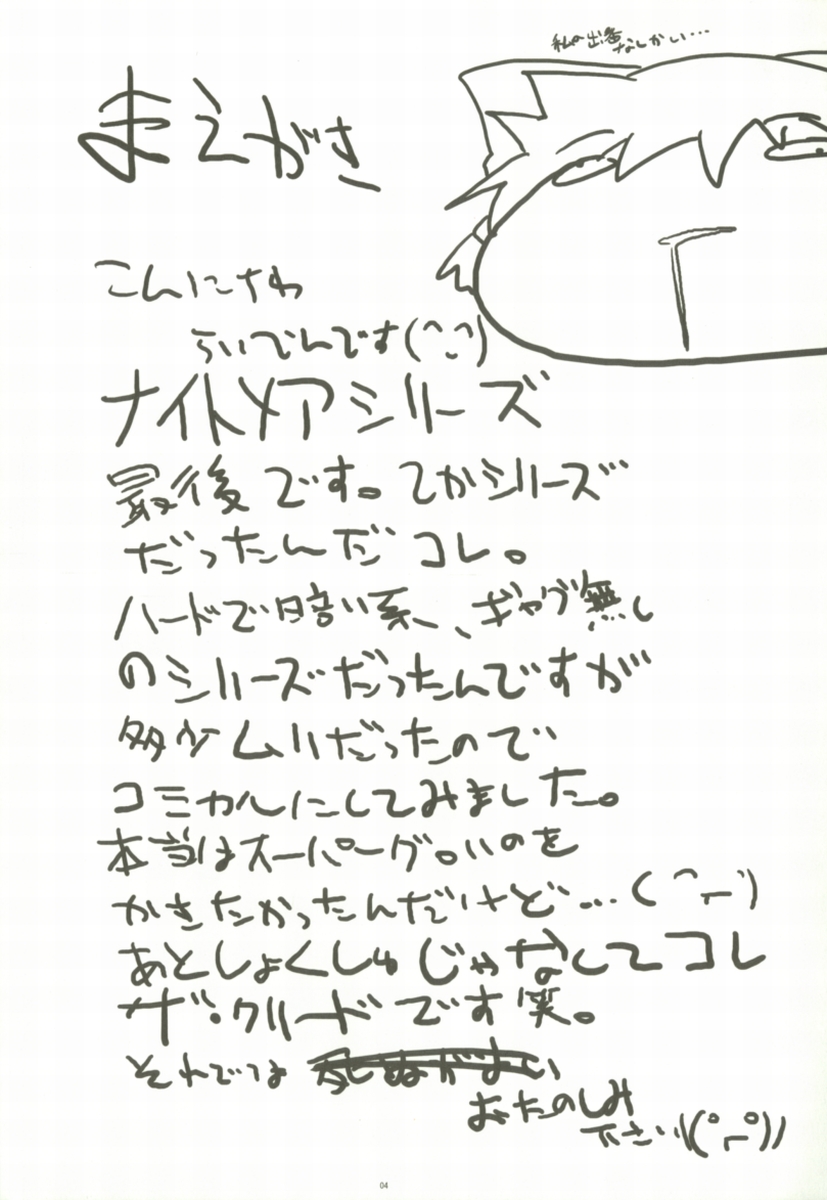 私の出番
なしかい…
まえがき
こんにちわ
らいでんです(^-^)
ナイトメアシリーズ
最後です。てかシリーズ
だったんだコレ。
ハードで暗い系、ギャグ無し
のシリーズだったんですが
多少ムリだったので
コミカルにしてみました。
本当はスーパーグロいのを
かきたかったんだけど…
あとしょくしゅじゃなくてコレ
ザ・クリードです笑。
それでは 死ぬがよい
おたのしみ
下さい
04